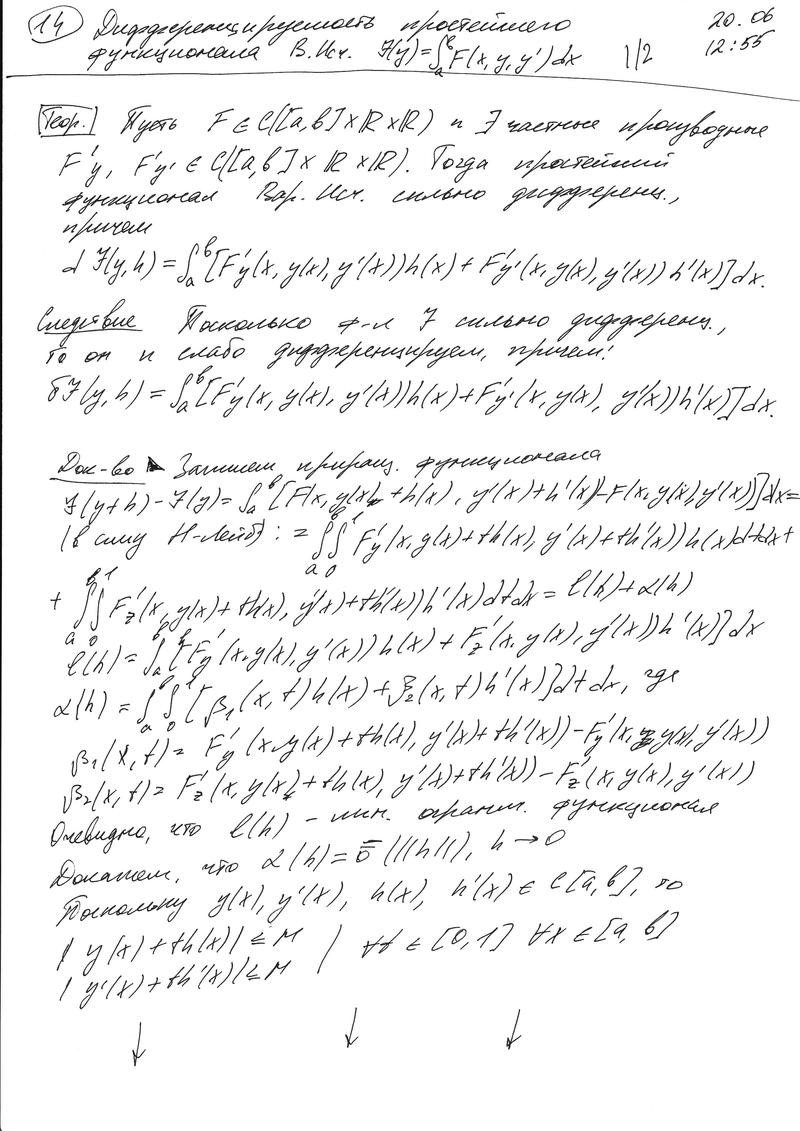 14 Дифференцируемость простейшего 20.06
функционала В.Исч. J(y)=∫_a^b F(x, y, y')dx 1/2 12:55
Теор. Пусть F ∈ C([a,b]×ℝ×ℝ) и ∃ частные производные
F'y, F'y' ∈ C([a,b]×ℝ×ℝ). Тогда простейший
функционал Вар. Исч. сильно дифференц.,
причем
dJ(y,h) = ∫_a^b [F'y(x, y(x), y'(x))h(x) + F'y'(x, y(x), y'(x))h'(x)]dx.
Следствие Поскольку ф-л J сильно дифференц.,
то он и слабо дифференцируем, причем:
δJ(y,h) = ∫_a^b [F'y(x, y(x), y'(x))h(x)+F'y'(x, y(x), y'(x))h'(x)]dx.
Док-во ▶ Запишем приращ. функционала
J(y+h) - J(y) = ∫_a^b [F(x, y(x)+h(x), y'(x)+h'(x))-F(x, y(x), y'(x))]dx =
(в силу Н-Лейб): = ∫_a^b ∫_0^1 F'y(x, y(x)+th(x), y'(x)+th'(x))h(x)dtdx+
+ ∫_a^b ∫_0^1 F'z(x, y(x)+th(x), y'(x)+th'(x))h'(x)dtdx = l(h)+α(h)
l(h) = ∫_a^b [F'y(x, y(x), y'(x))h(x) + F'z(x, y(x), y'(x))h'(x)]dx
α(h) = ∫_a^b ∫_0^1 [β1(x,t)h(x)+β2(x,t)h'(x)]dtdx, где
β1(x,t) = F'y(x, y(x)+th(x), y'(x)+th'(x))-F'y(x, y(x), y'(x))
β2(x,t) = F'z(x, y(x)+th(x), y'(x)+th'(x))-F'z(x, y(x), y'(x))
Очевидно, что l(h) - лин. огранич. функционал
Докажем, что α(h) = ō(||h||), h→0
Поскольку y(x), y'(x), h(x), h'(x) ∈ C[a,b], то
|y(x)+th(x)| ≤ M | ∀t ∈ [0,1] ∀x ∈ [a,b]
|y'(x)+th'(x)| ≤ M
↓ ↓ ↓